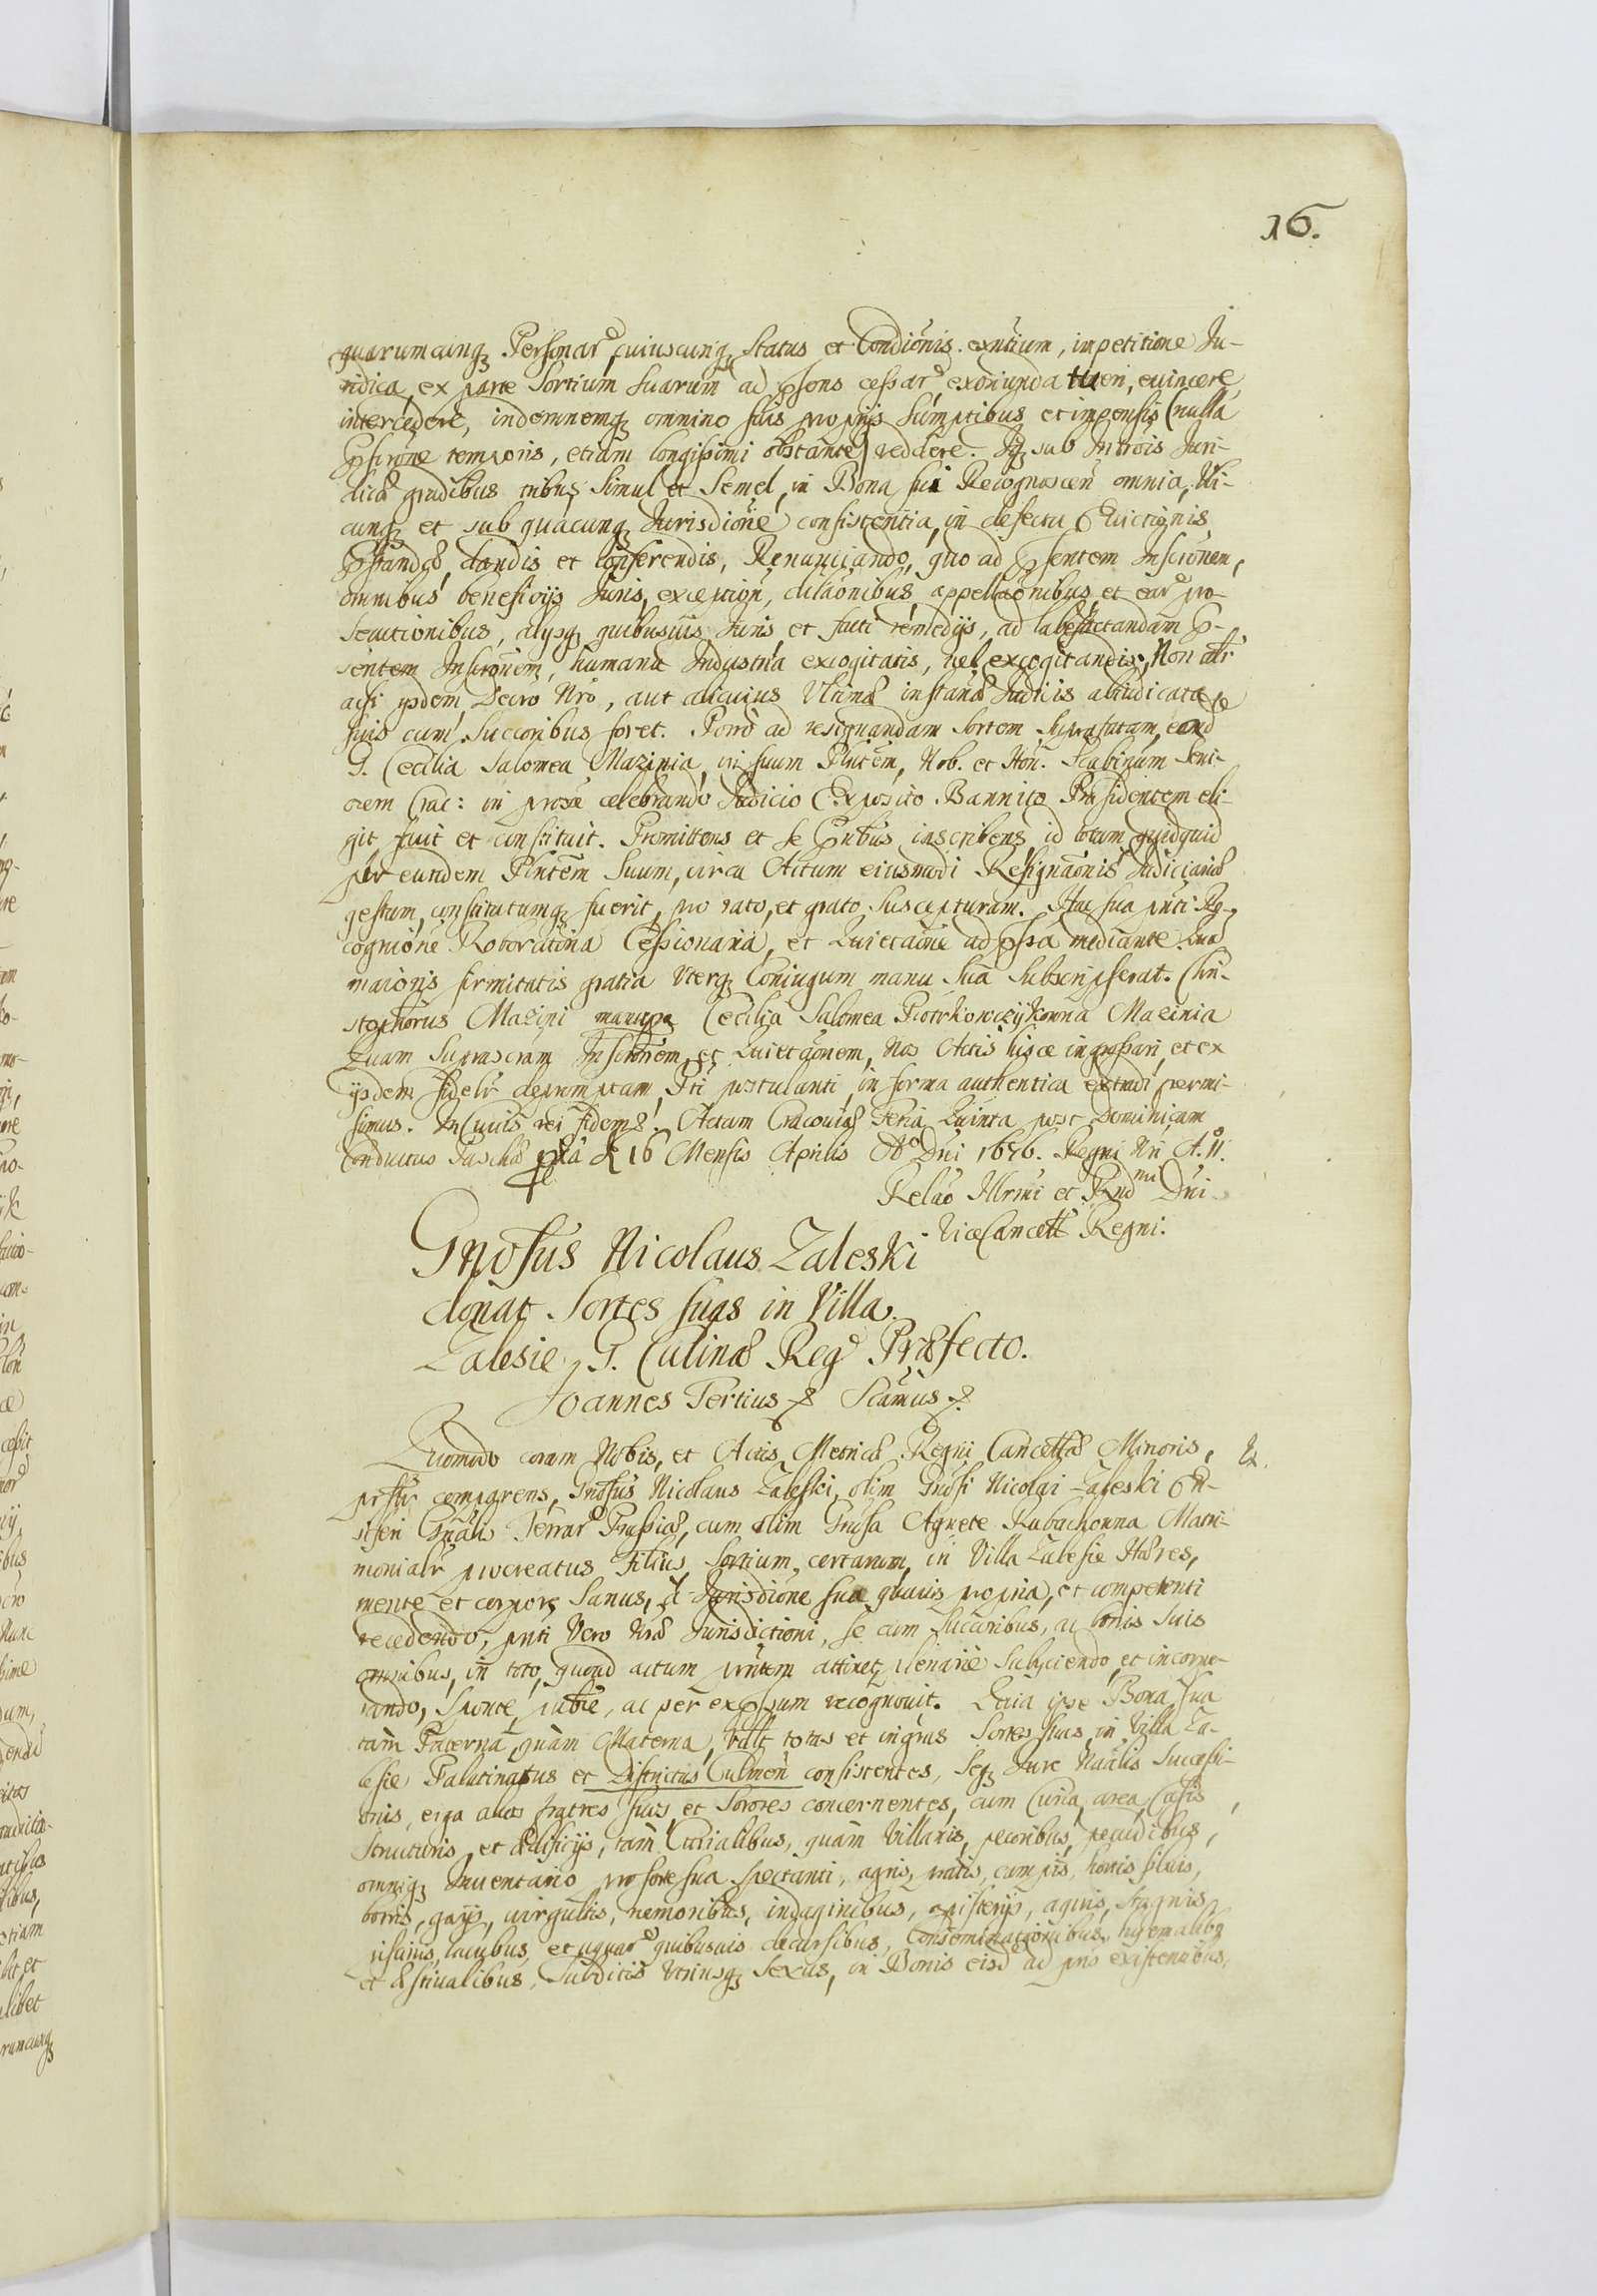 16.
quarumcunq; Personar, cuiuscunq; Status et Condiōnis exn̄tium, impetitione Ju-
ridica ex parte Sortium suarum ad p̄sens cessar̄ exoriunda tueri, euincere
intercedere, indemnemq; omnino suis proprijs sumptibus et impensis (nulla
p̄scriōne temporis, etiam longissimi obstante) reddere. Idq; sub Introīs Juri-
dicæ gradibus tribus simul et semel, in Bona sui Recognoscen̄ omnia, Vbi-
cunq; et sub quacunq; Jurisdiōne consistentia, in defectu Euictionis
p̄standæ, dandis et conferendis, Renunciando, quo ad p̄sentem Inscriōnem,
omnibus beneficijs Juris, exception̄, dilaōnibus appellaōnibus et ear̄ pro-
secutionibus, alijsq; quibusuis Juris et facti remedijs, ad labefactandam p̄-
sentem Inscriōnem, humana Industria excogitatis, uel excogitandis, Non alr̄
acsi ijsdem Decro Nrō, aut alicuius Vltimæ instan̄æ Judicis abiudicatæ
suis cum Succoribus foret. Porrò ad resignandam Sortem supra fatam, eand̄
G. Cecilia Salomea Mazinia, in suum Plntēm, Nob. et Hon̄. Scabinum Seni-
orem Crac: in proxē celebrando Judicio Exposito Bannito Præsidentem eli-
git fecit et constituit. Promittens et se p̄ntibus inscribens id totum quidquid
per eundem Plntēm suum, circa Actum eiusmodi Resignaōnis Judiciariæ
gestum, constitutumq; fuerit, pro rato, et grato suscepturam. Hac sua pn̄ti Re-
cogniōne Roboratoria Cessionaria, et Quietaōne ad p̄ssa mediante. Quā
maioris firmitatis gratia Vterq; Coniugum manu sua subscripserat. Chri-
stophorus Mazini manuppa Cecilia Salomea Piotrkowczykowna Mazinia
Quam suprascrām Inscriōnem, et Quietaōnem, Nos Actis hisce ingrossari, et ex
ijsdem fidelr̄ depromptam, Pti postulanti, in forma authentica extradi permi-
simus. In Cuius rei fidem &. Actum Cracouiæ Feria Quinta post Dominicam
Conductus Paschæ p̄xa d. 16 Mensis Aprilis Aō Dni 1676. Regni Nri A. II.
Relāo Illrmi et Rnd mi Dni
ViceCancell Regni.
Gnosus Nicolaus Zaleski
donat Sortes suas in Villa
Zalesie, G. Culinæ Reg Præfecto.
Joannes Tertius & Scamus &
Quomodo coram Nobis, et Actis Metricæ Regni Cancellæ Minoris, Ex.
psr̄ comparens, Gnosus Nicolaus Zaleski, olim Gnosi Nicolai Zaleski En-
siferi Gnālis Terrar Prussiæ, cum olim Gnosa Agnete Kubachonna Matri-
monialr̄ procreatus Filius, Sortium certarum, in Villa Zalesie Hæres,
mente et corpore sanus, à Jurisdiōne sua quauis propria, et competenti
recedendo, pn̄ti Vero Nræ Jurisdictioni, se cum Succoribus, ac bonis suis
omnibus, in toto, quoad actum pn̄tem attinet, plenariè subijciendo, et incorpo-
rando, sponte, publie, ac per expsum recognouit. Quia ipse Bona sua
tàm Paterna, quàm Materna, vult totas et ingras Sortes suas, in Villa Za-
lesie Palatinatus et Districtus Culmen̄ consistentes, seq; Jure Naālis Successi-
onis, erga alios fratres suos et Sorores concernentes, cum Curia, area Casis
structuris, et ædificijs, tam Curialibus, quàm Villaris, pecoribus, pecudibus,
omniq; Inuentario pro sorte sua spectanti, agris, pratis, campis, hortis siluis,
borris, gays, uirgultis, nemoribus, indaginibus, aquis, stagnis
piscinis, lacubus, et aquar̄ quibusuis decursibus, Conseminationibus, hyemalibq;
et æstiualibus, Subditis Vtriusq; Sexus, in Bonis eisd̄ ad pn̄s existentibus,